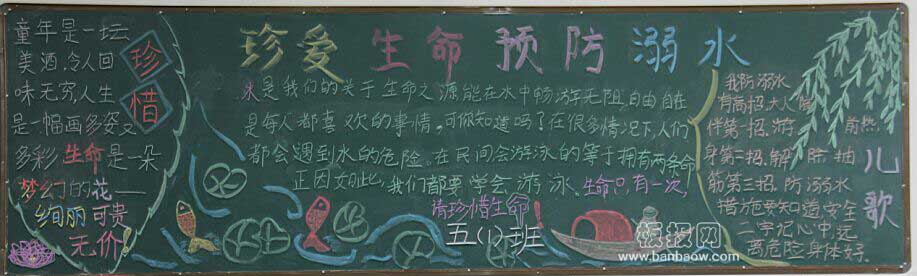 珍爱生命 预防溺水
珍惜
童年是一坛
美酒,令人回
味无穷,人生
是一幅画多姿又
多彩,生命是一朵
梦幻的花——
绚丽可贵
无价!
水是我们的关于生命之源能在水中畅游无阻,自由自在
是每人都喜欢的事情,可你知道吗?在很多情况下,人们
都会遇到水的危险。在民间会游泳的等于拥有两条命
正因如此,我们都要学会游泳、生命只有一次,
请珍惜生命!
五(1)班
儿歌
我防溺水
有高招,大人陪
伴第一招,游前热
身第二招,解除抽
筋第三招,防溺水
措施要知道,安全
二字记心中,远
离危险身体好.
板报网
www.banbaow.com